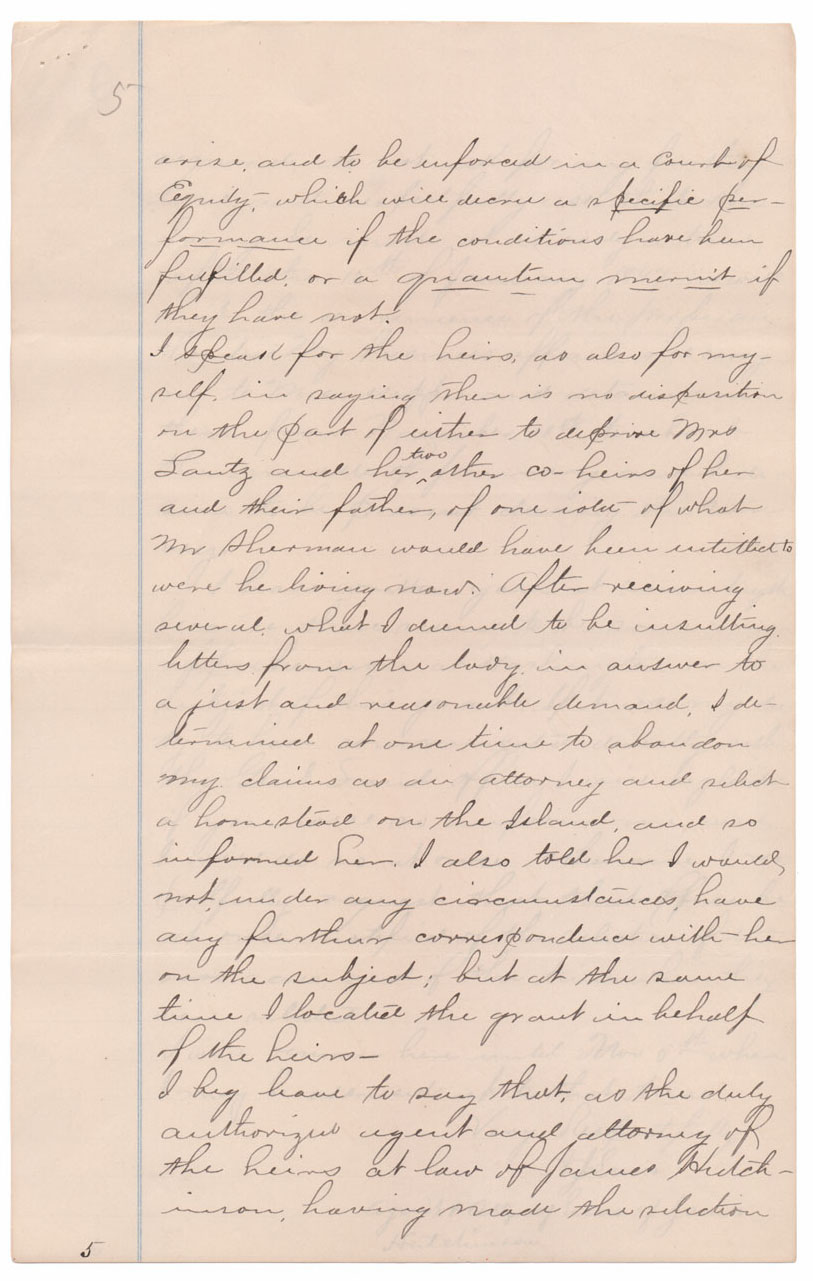 5
arise, and to be enforced in a Court of
Equity, which will decree a specific per-
formance if the conditions have been
fulfilled, or a quantum meruit if
they have not.
I speak for the heirs, as also for my-
self, in saying there is no disposition
on the part of either to deprive Mrs
Lantz and her two other co-heirs of her
and their father, of one iota of what
Mr Sherman would have been entitled to
were he living now. After receiving
several, what I deemed to be insulting
letters from the lady in answer to
a just and reasonable demand, I de-
termined at one time to abandon
my claims as an attorney and select
a homestead on the Island, and so
informed her. I also told her I would,
not, under any circumstances, have
any further correspondence with her
on the subject; but at the same
time I located the grant in behalf
of the heirs-
I beg leave to say that, as the duly
authorized agent and attorney of
the heirs at law of James Hutch-
inson, having made the selection
5